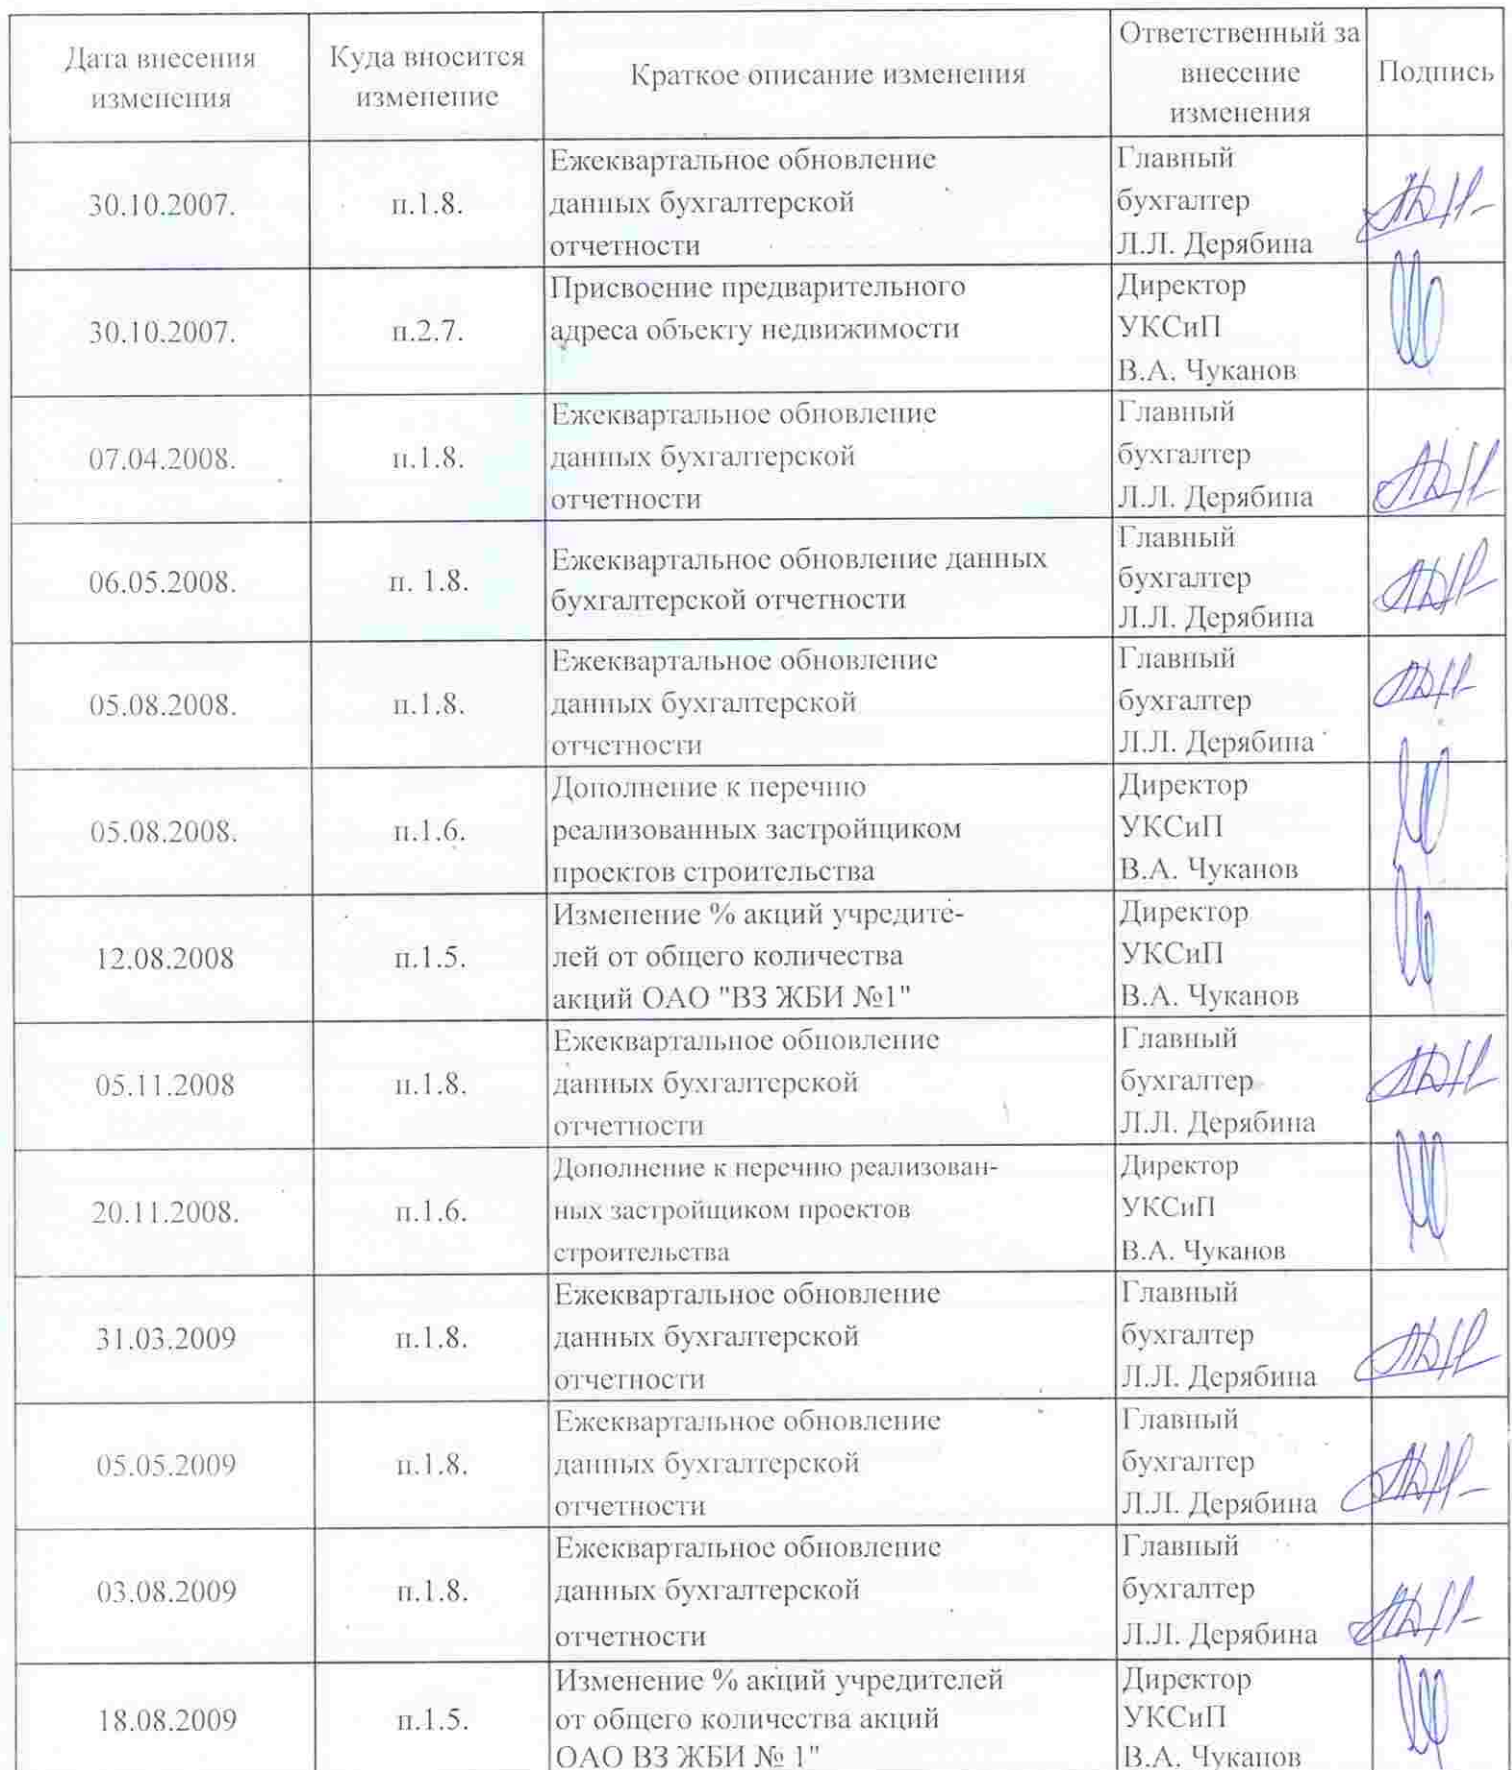 Дата внесения
изменения
Куда вносится
изменение
Краткое описание изменения
Ответственный за
внесение
изменения
Подпись
30.10.2007.
п.1.8.
Ежеквартальное обновление
данных бухгалтерской
отчетности
Главный
бухгалтер
Л.Л. Дерябина
30.10.2007.
п.2.7.
Присвоение предварительного
адреса объекту недвижимости
Директор
УКСиП
В.А. Чуканов
07.04.2008.
п.1.8.
Ежеквартальное обновление
данных бухгалтерской
отчетности
Главный
бухгалтер
Л.Л. Дерябина
06.05.2008.
п. 1.8.
Ежеквартальное обновление данных
бухгалтерской отчетности
Главный
бухгалтер
Л.Л. Дерябина
05.08.2008.
п.1.8.
Ежеквартальное обновление
данных бухгалтерской
отчетности
Главный
бухгалтер
Л.Л. Дерябина
05.08.2008.
п.1.6.
Дополнение к перечню
реализованных застройщиком
проектов строительства
Директор
УКСиП
В.А. Чуканов
12.08.2008
п.1.5.
Изменение % акций учредите-
лей от общего количества
акций ОАО "ВЗ ЖБИ №1"
Директор
УКСиП
В.А. Чуканов
05.11.2008
п.1.8.
Ежеквартальное обновление
данных бухгалтерской
отчетности
Главный
бухгалтер
Л.Л. Дерябина
20.11.2008.
п.1.6.
Дополнение к перечню реализован-
ных застройщиком проектов
строительства
Директор
УКСиП
В.А. Чуканов
31.03.2009
п.1.8.
Ежеквартальное обновление
данных бухгалтерской
отчетности
Главный
бухгалтер
Л.Л. Дерябина
05.05.2009
п.1.8.
Ежеквартальное обновление
данных бухгалтерской
отчетности
Главный
бухгалтер
Л.Л. Дерябина
03.08.2009
п.1.8.
Ежеквартальное обновление
данных бухгалтерской
отчетности
Главный
бухгалтер
Л.Л. Дерябина
18.08.2009
п.1.5.
Изменение % акций учредителей
от общего количества акций
ОАО ВЗ ЖБИ № 1"
Директор
УКСиП
В.А. Чуканов